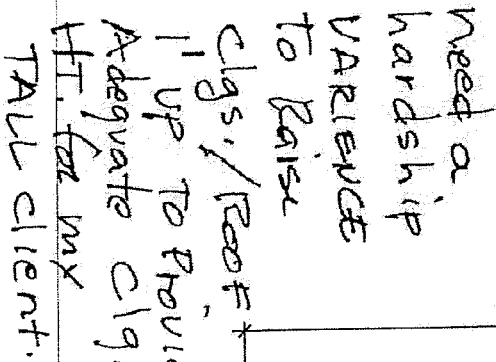 Need a
hardship
VARIENCE
To Raise
Clgs./ROOF
1' UP TO Provi
Adequate Clg
HT. for my
TALL client.